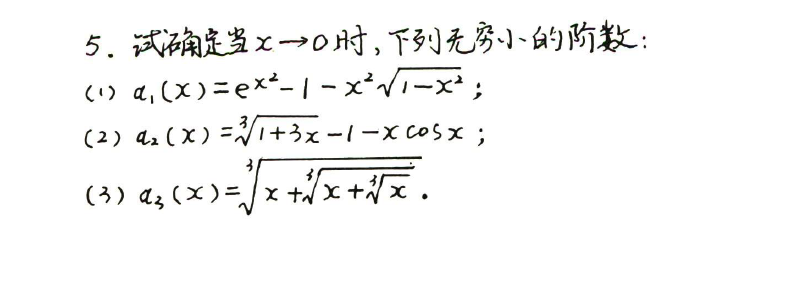 5. 试确定当 x→0 时, 下列无穷小的阶数:
(1) α₁(x)=e^{x²}-1-x²√(1-x²) ;
(2) α₂(x)=∛(1+3x)-1-x cosx ;
(3) α₃(x)=∛(x+∛(x+∛x)) .